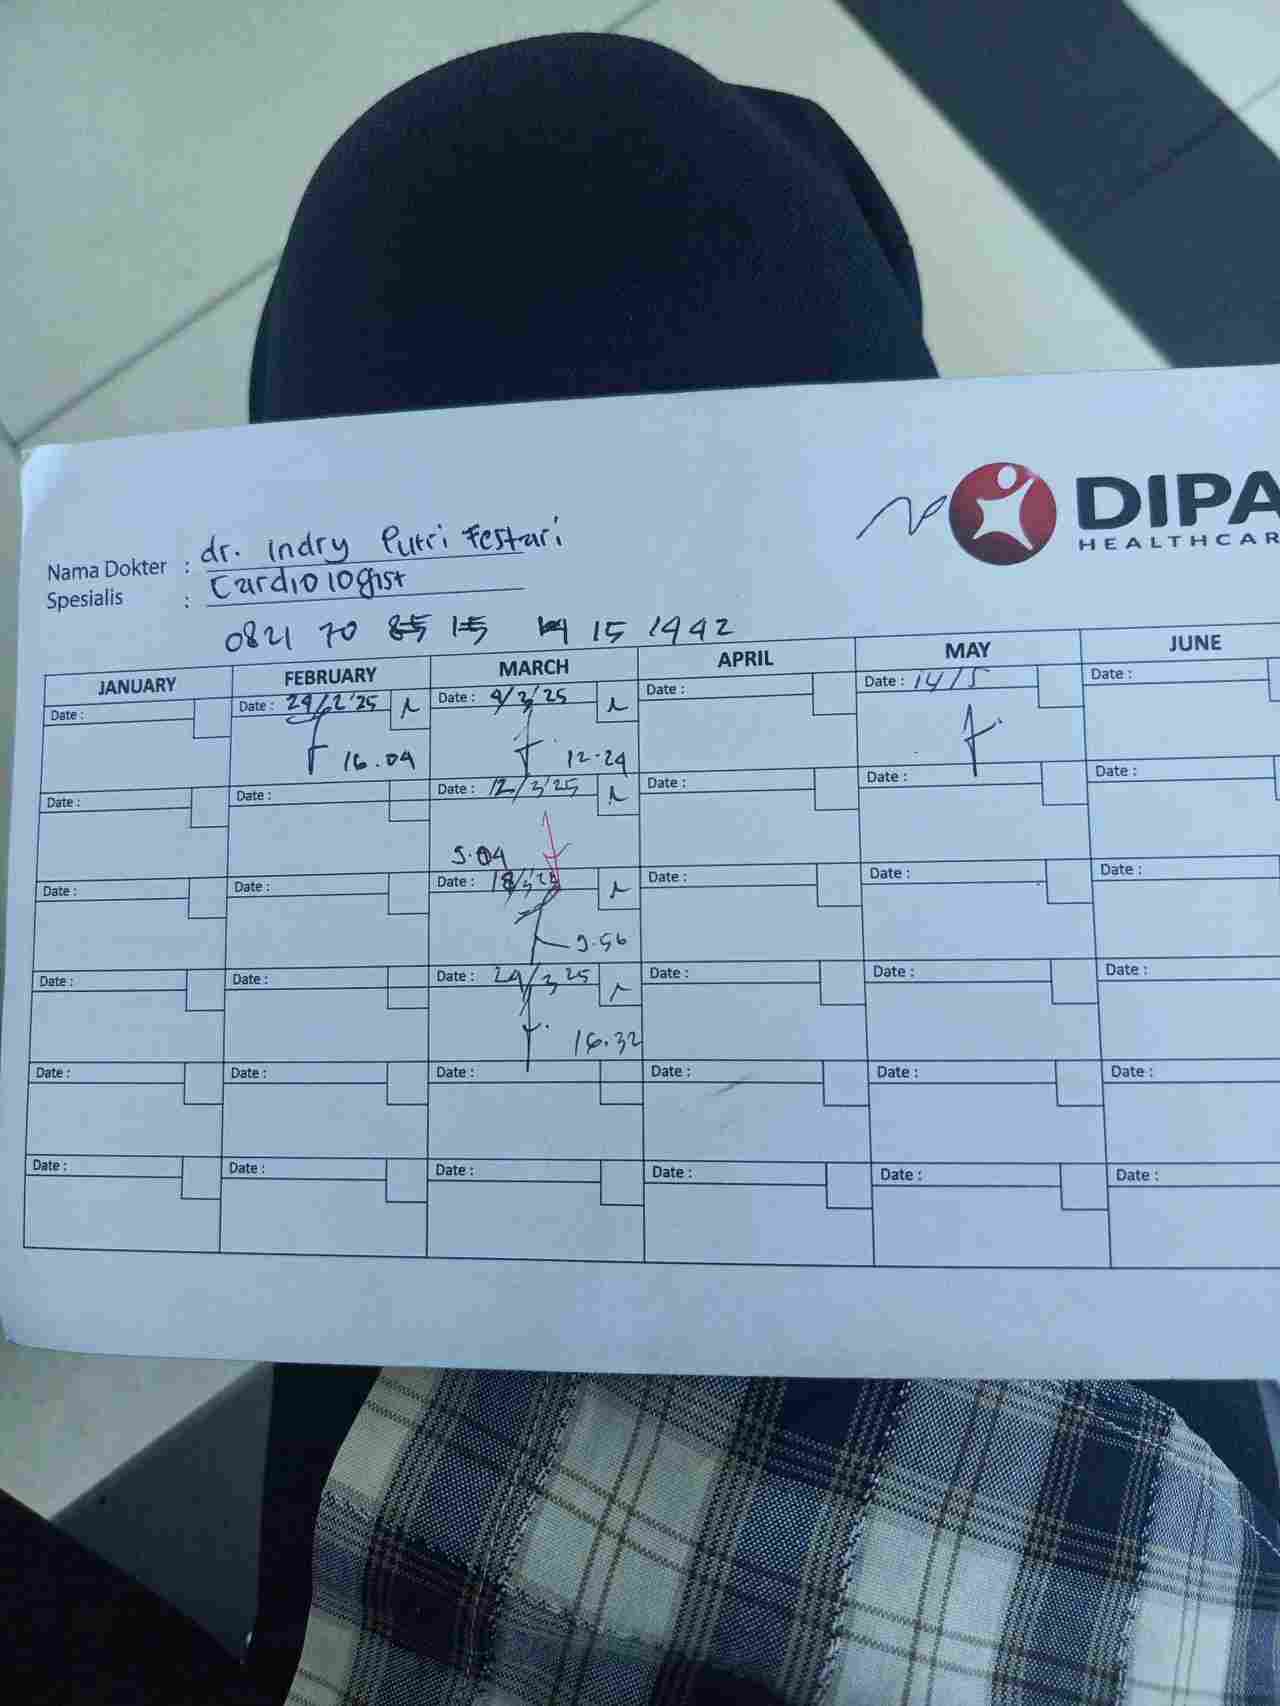 DIPA
HEALTHCAR
Nama Dokter : dr. Indry Putri Festari
Spesialis : Cardiologist
0821 70 15 15 1942
JANUARY FEBRUARY MARCH APRIL MAY JUNE
Date : Date : 24/2'25 Date : 4/3/25 Date : Date : 14/5 Date :
16.04 12.24
Date : Date : Date : 12/3'25 Date : Date : Date :
9.04
Date : Date : Date : 18/3'25 Date : Date : Date :
9.56
Date : Date : Date : 24/3 25 Date : Date : Date :
16.32
Date : Date : Date : Date : Date : Date :
Date : Date : Date : Date : Date : Date :